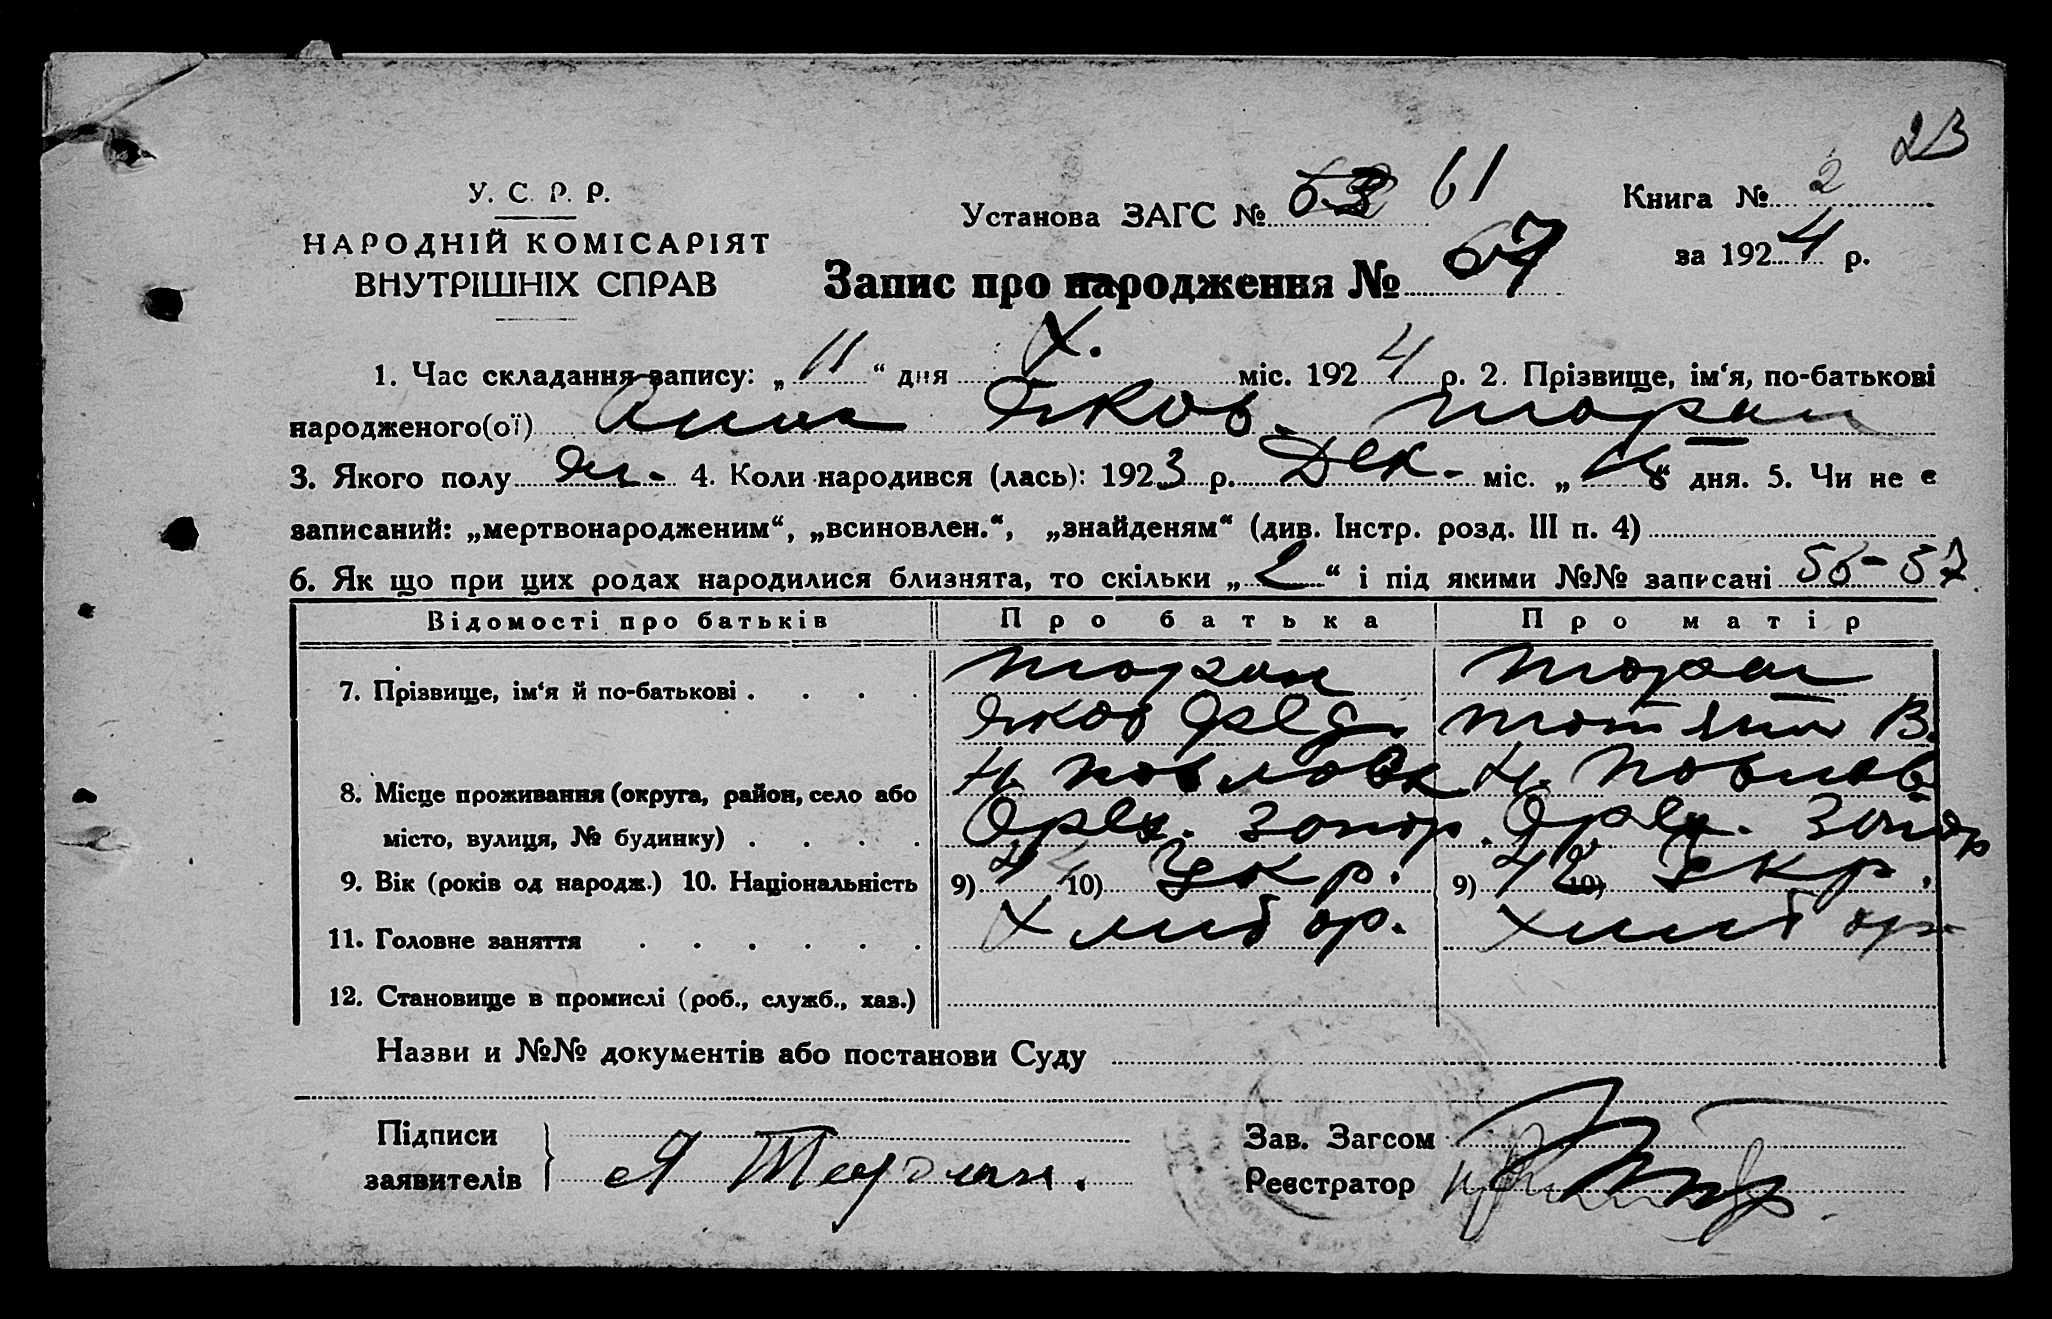 23
У. С. Р. Р.
НАРОДНІЙ КОМІСАРІЯТ
ВНУТРІШНІХ СПРАВ
Установа ЗАГС № 61
Книга № 2
за 1924 р.
Запис про народження № 67
1. Час складання запису: „11“ дня X. міс. 1924 р. 2. Прізвище, ім‘я, по-батькові
народженого(ої) Анна Яков.
3. Якого полу 4. Коли народився (лась): 1923 р. Дек. міс. „ “ дня. 5. Чи не є
записаний: „мертвонародженим“, „всиновлен.“, „знайденям“ (див. Інстр. розд. III п. 4)
6. Як що при цих родах народилися близнята, то скільки „2“ і під якими №№ записані 56-57
Відомості про батьків Про батька Про матір
7. Прізвище, ім‘я й по-батькові
Яков В.
8. Місце проживання (округа, район, село або Н. Н.
місто, вулиця, № будинку) Орех. Запор. Орех. Запор
9. Вік (років од народж.) 10. Національність 9) 10) Укр. 9) 42 10) Укр.
11. Головне заняття Хлибор. Хлибор.
12. Становище в промислі (роб., служб., хаз.)
Назви и №№ документів або постанови Суду
Підписи
заявителів
Зав. Загсом
Реєстратор